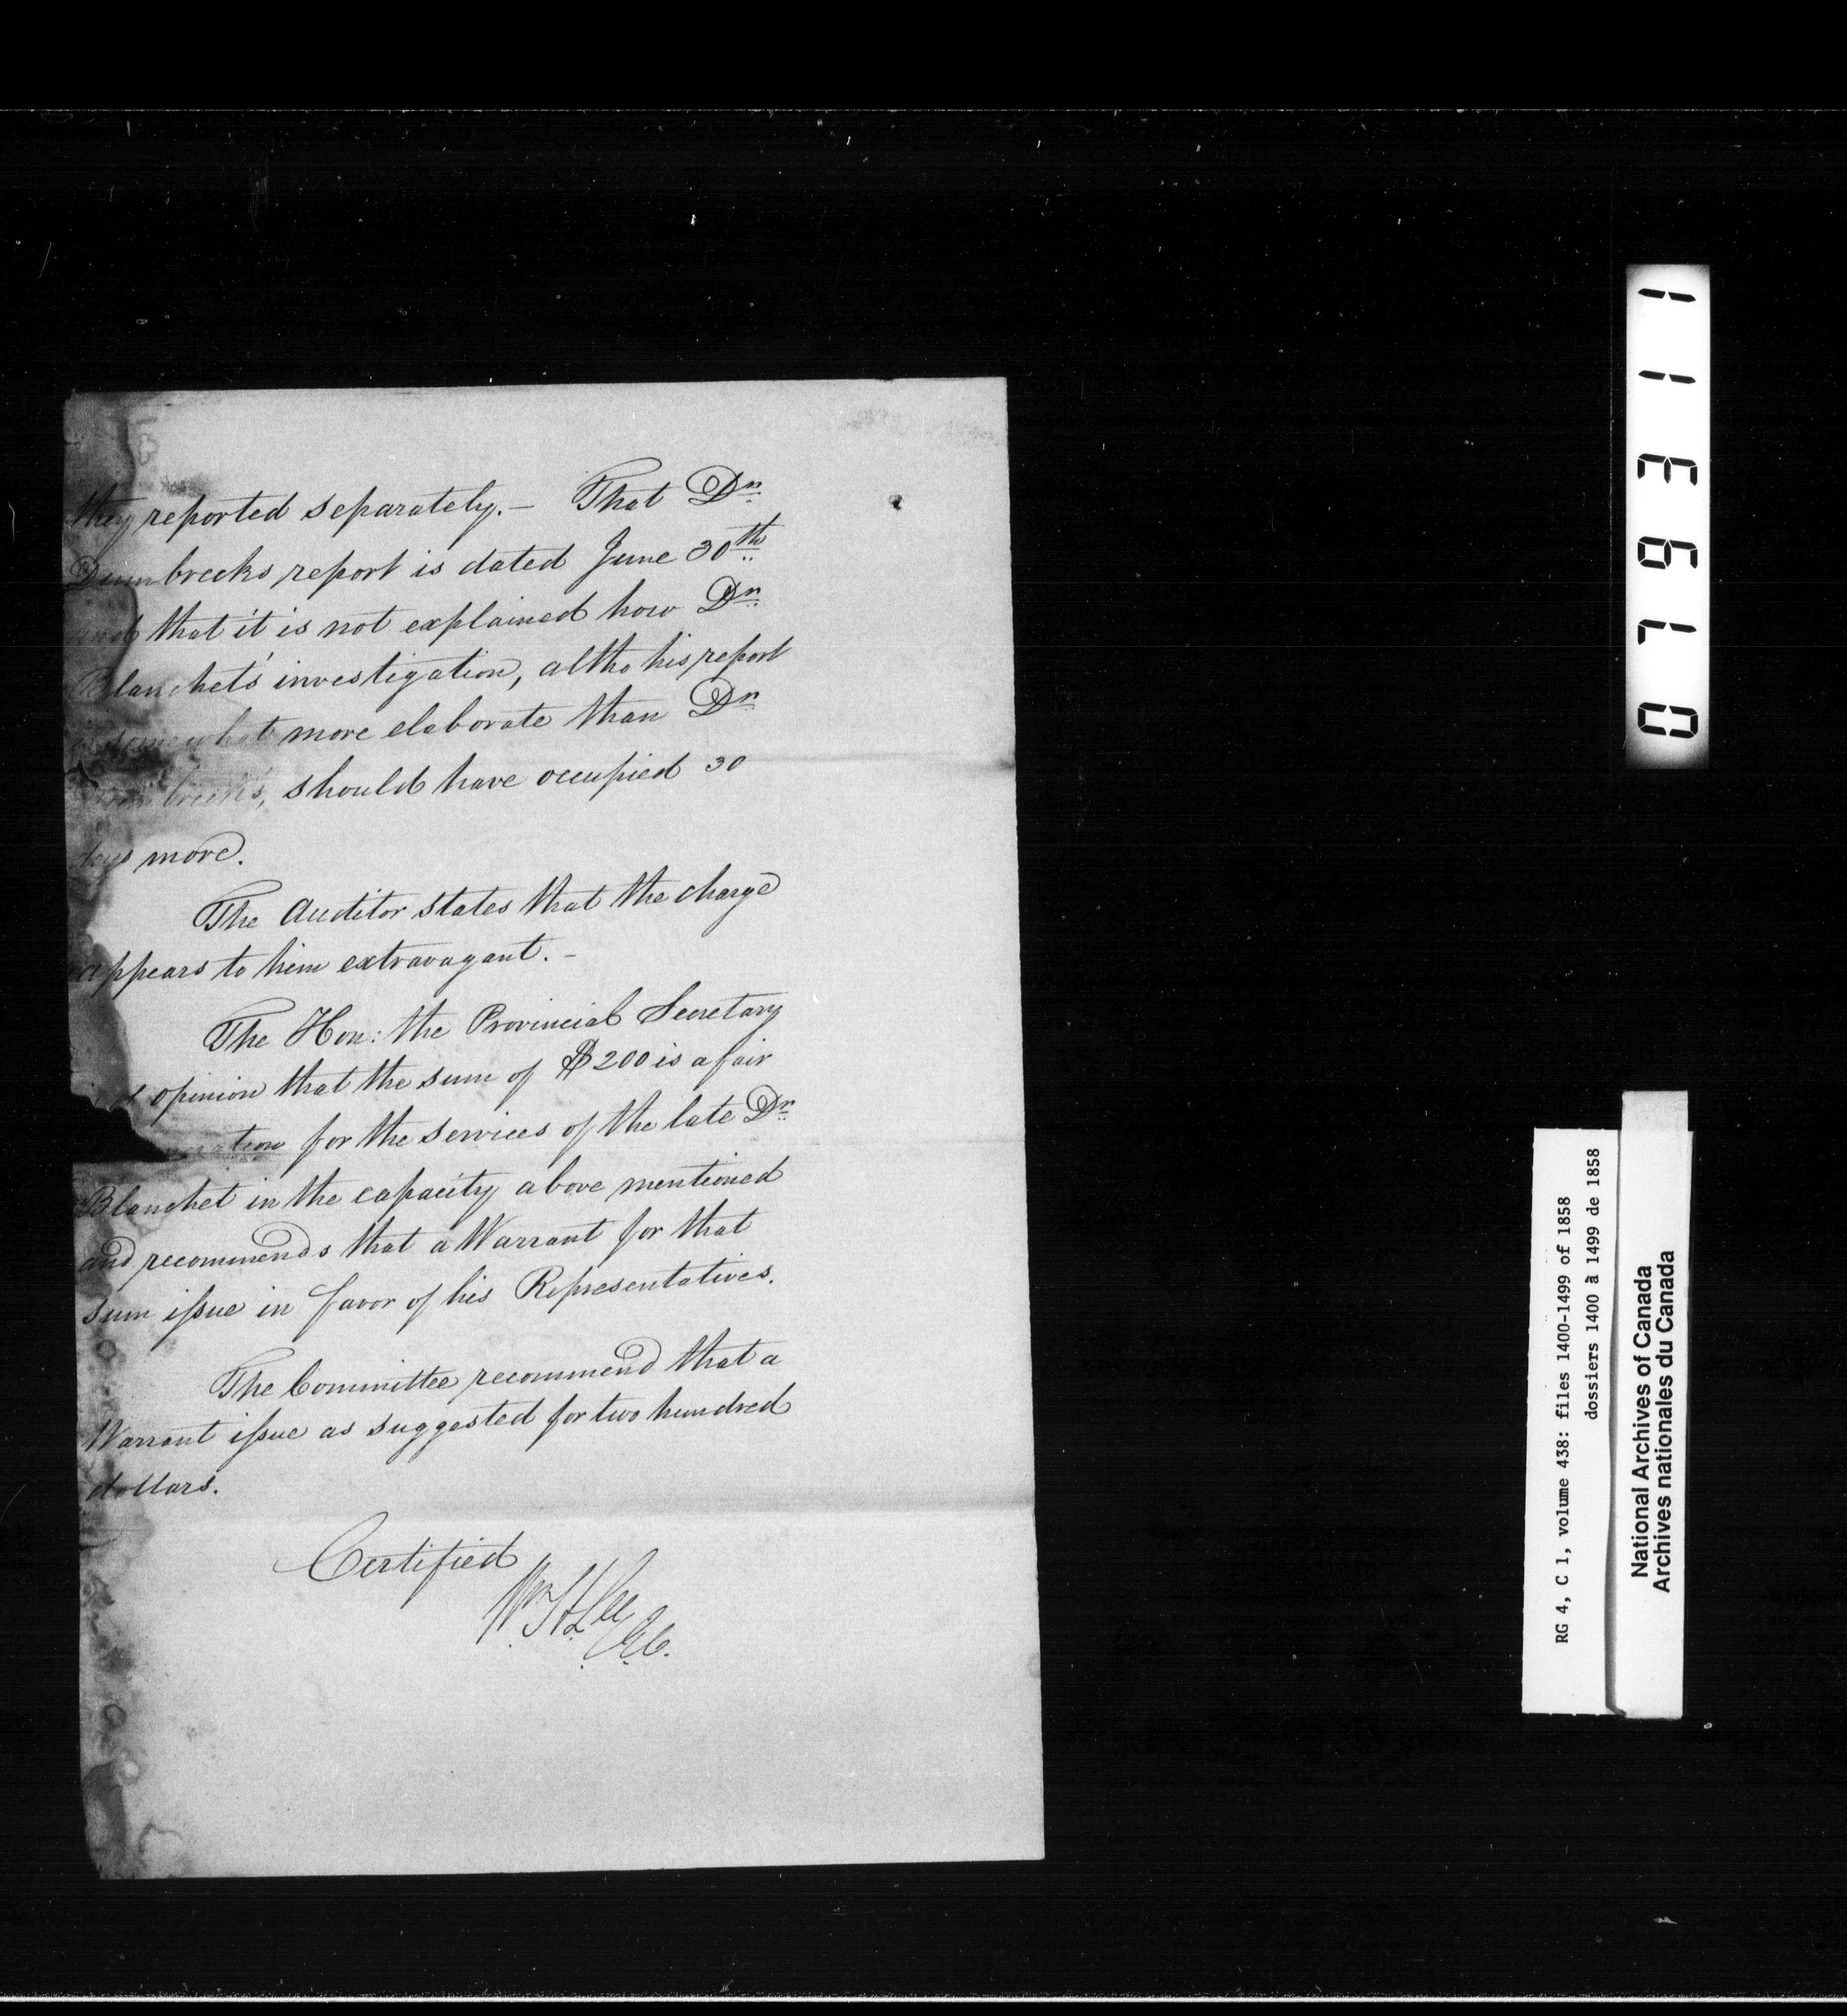 they reported separately.– That Dr.
Dumbrecks report is dated June 30th
and that it is not explained how Dr.
Blanchet's investigation, altho his report
is somewhat more elaborate than Dr.
should have occupied 30
days more.
The Auditor states that the charge
appears to him extravagant.–
The Hon: the Provincial Secretary
is of opinion that the sum of $200 is a fair
for the services of the late Dr.
Blanchet in the capacity above mentioned
and recommends that a Warrant for that
sum issue in favor of his Representatives.
The Committee recommend that a
Warrant issue as suggested for two hundred
dollars.
Certified
W. H. Lee
C.E.C.
076311
RG 4, C 1, volume 438: files 1400-1499 of 1858
dossiers 1400 à 1499 de 1858
National Archives of Canada
Archives nationales du Canada